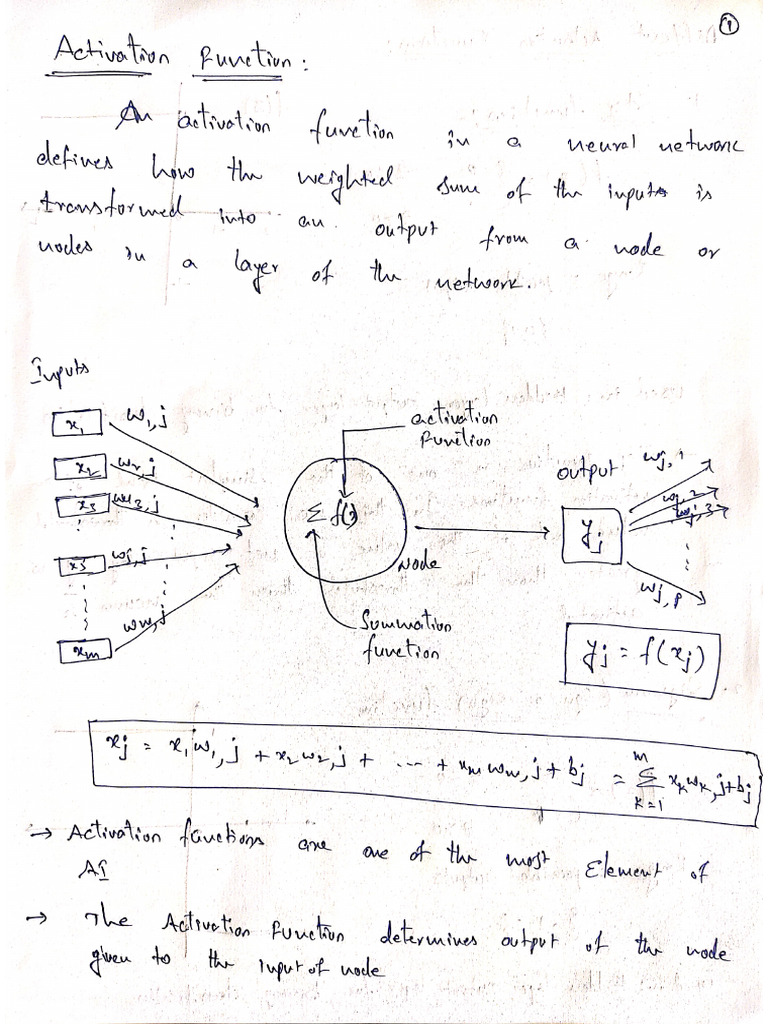 1
Activation Function:
An activation function in a neural network
defines how the weighted sum of the inputs is
transformed into an output from a node or
nodes in a layer of the network.
Inputs
x1 w1,j
x2 w2,j
x3 w3,j
xj wj,j
xm wm,j
activation
function
Σ f()
Node
Summation
function
output
yj
wj,1
wj,2
wj,3
wj,p
yj = f(xj)
xj = x1w1,j + x2w2,j + ... + xmwm,j + bj = Σ xkwk,j+bj
m
k=1
→ Activation functions are one of the most Element of
AI
→ The Activation Function determines output of the node
given to the input of node